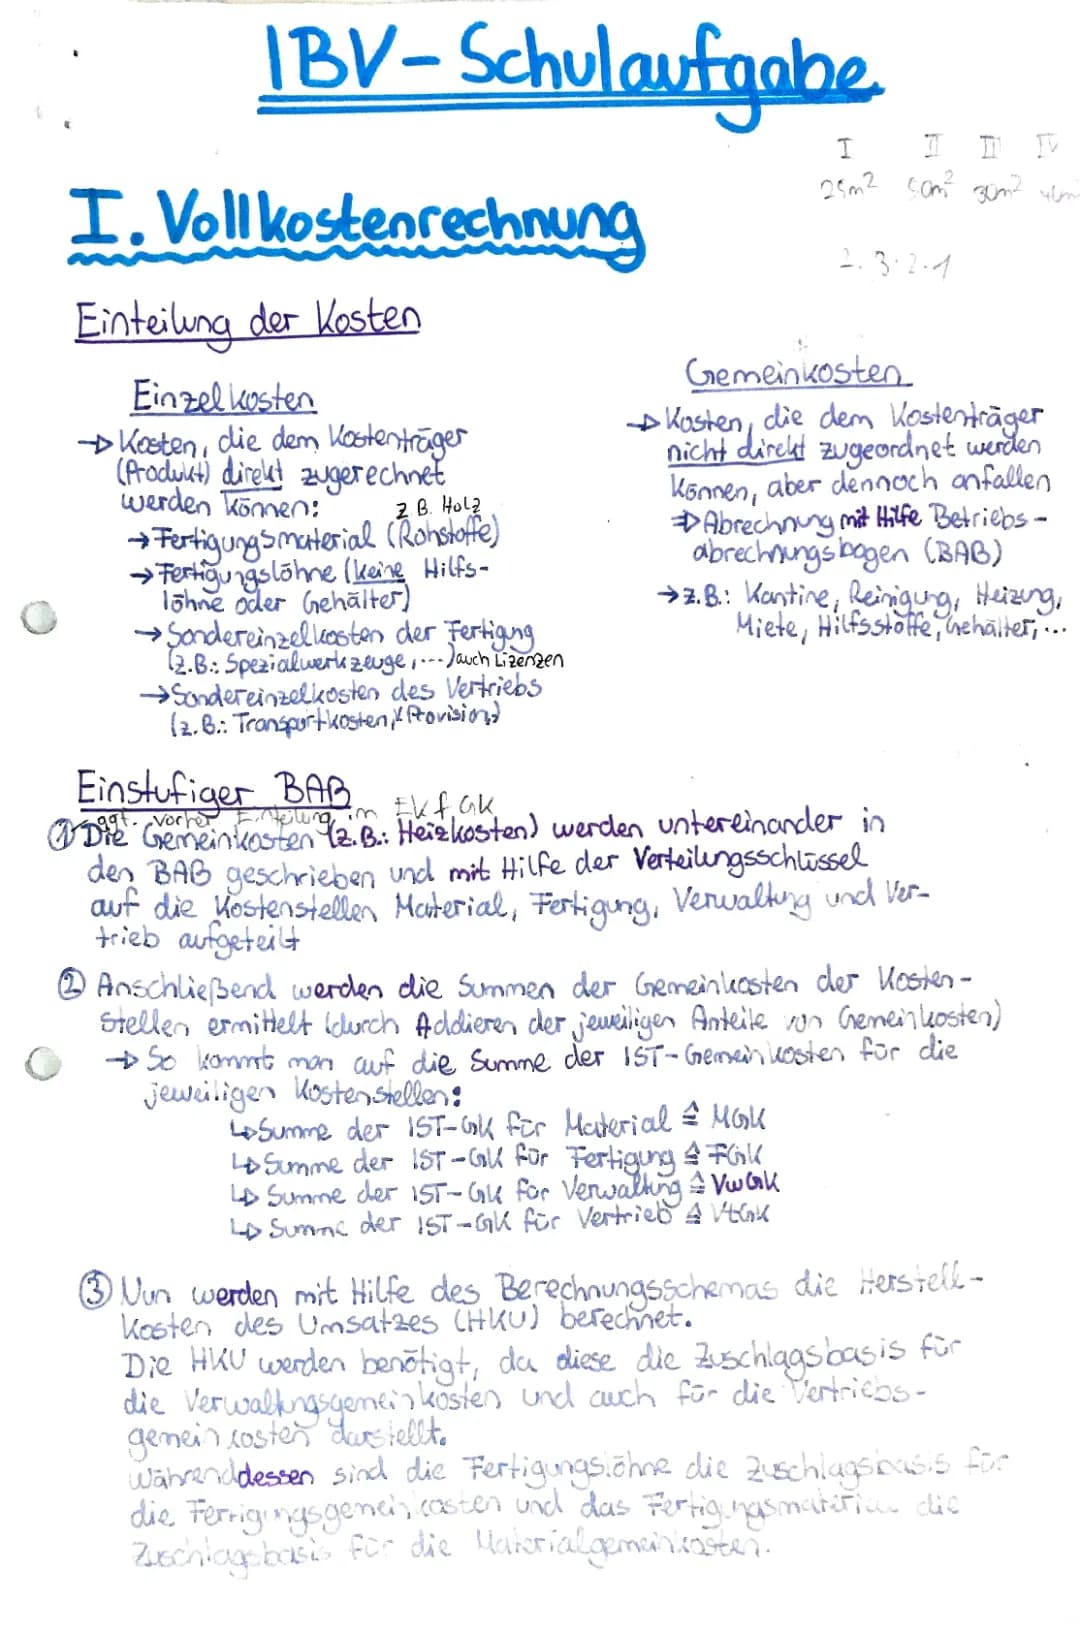 IBV-Schulaufgabe
I II III IV
25m² 50m² 30m²
I. Vollkostenrechnung
2.3.2.1
Einteilung der Kosten
Einzelkosten
→ Kosten, die dem Kostenträger
(Produkt) direkt zugerechnet
werden können: z.B. Holz
→ Fertigungsmaterial (Rohstoffe)
→ Fertigungslöhne (keine Hilfs-
löhne oder Gehälter)
→ Sondereinzelkosten der Fertigung
(z.B.: Spezialwerkzeuge,...) auch Lizenzen
→ Sondereinzelkosten des Vertriebs
(z.B.: Transportkosten, Provision)
Gemeinkosten
→ Kosten, die dem Kostenträger
nicht direkt zugeordnet werden
können, aber dennoch anfallen
⇒ Abrechnung mit Hilfe Betriebs-
abrechnungsbogen (BAB)
→ z.B.: Kantine, Reinigung, Heizung,
Miete, Hilfsstoffe, Gehälter,...
Einstufiger BAB
ggf. vorher Einteilung im EK & GK
① Die Gemeinkosten (z.B.: Heizkosten) werden untereinander in
den BAB geschrieben und mit Hilfe der Verteilungsschlüssel
auf die Kostenstellen Material, Fertigung, Verwaltung und Ver-
trieb aufgeteilt
② Anschließend werden die Summen der Gemeinkosten der Kosten-
stellen ermittelt (durch Addieren der jeweiligen Anteile von Gemeinkosten)
→ So kommt man auf die Summe der IST-Gemeinkosten für die
jeweiligen Kostenstellen:
↳ Summe der IST-GK für Material ≙ MGK
↳ Summe der IST-GK für Fertigung ≙ FGK
↳ Summe der IST-GK für Verwaltung ≙ VwGK
↳ Summe der IST-GK für Vertrieb ≙ VtGK
③ Nun werden mit Hilfe des Berechnungsschemas die Herstell-
kosten des Umsatzes (HKU) berechnet.
Die HKU werden benötigt, da diese die Zuschlagsbasis für
die Verwaltungsgemeinkosten und auch für die Vertriebs-
gemeinkosten darstellt.
Währenddessen sind die Fertigungslöhne die Zuschlagsbasis für
die Fertigungsgemeinkosten und das Fertigungsmaterial die
Zuschlagsbasis für die Materialgemeinkosten.